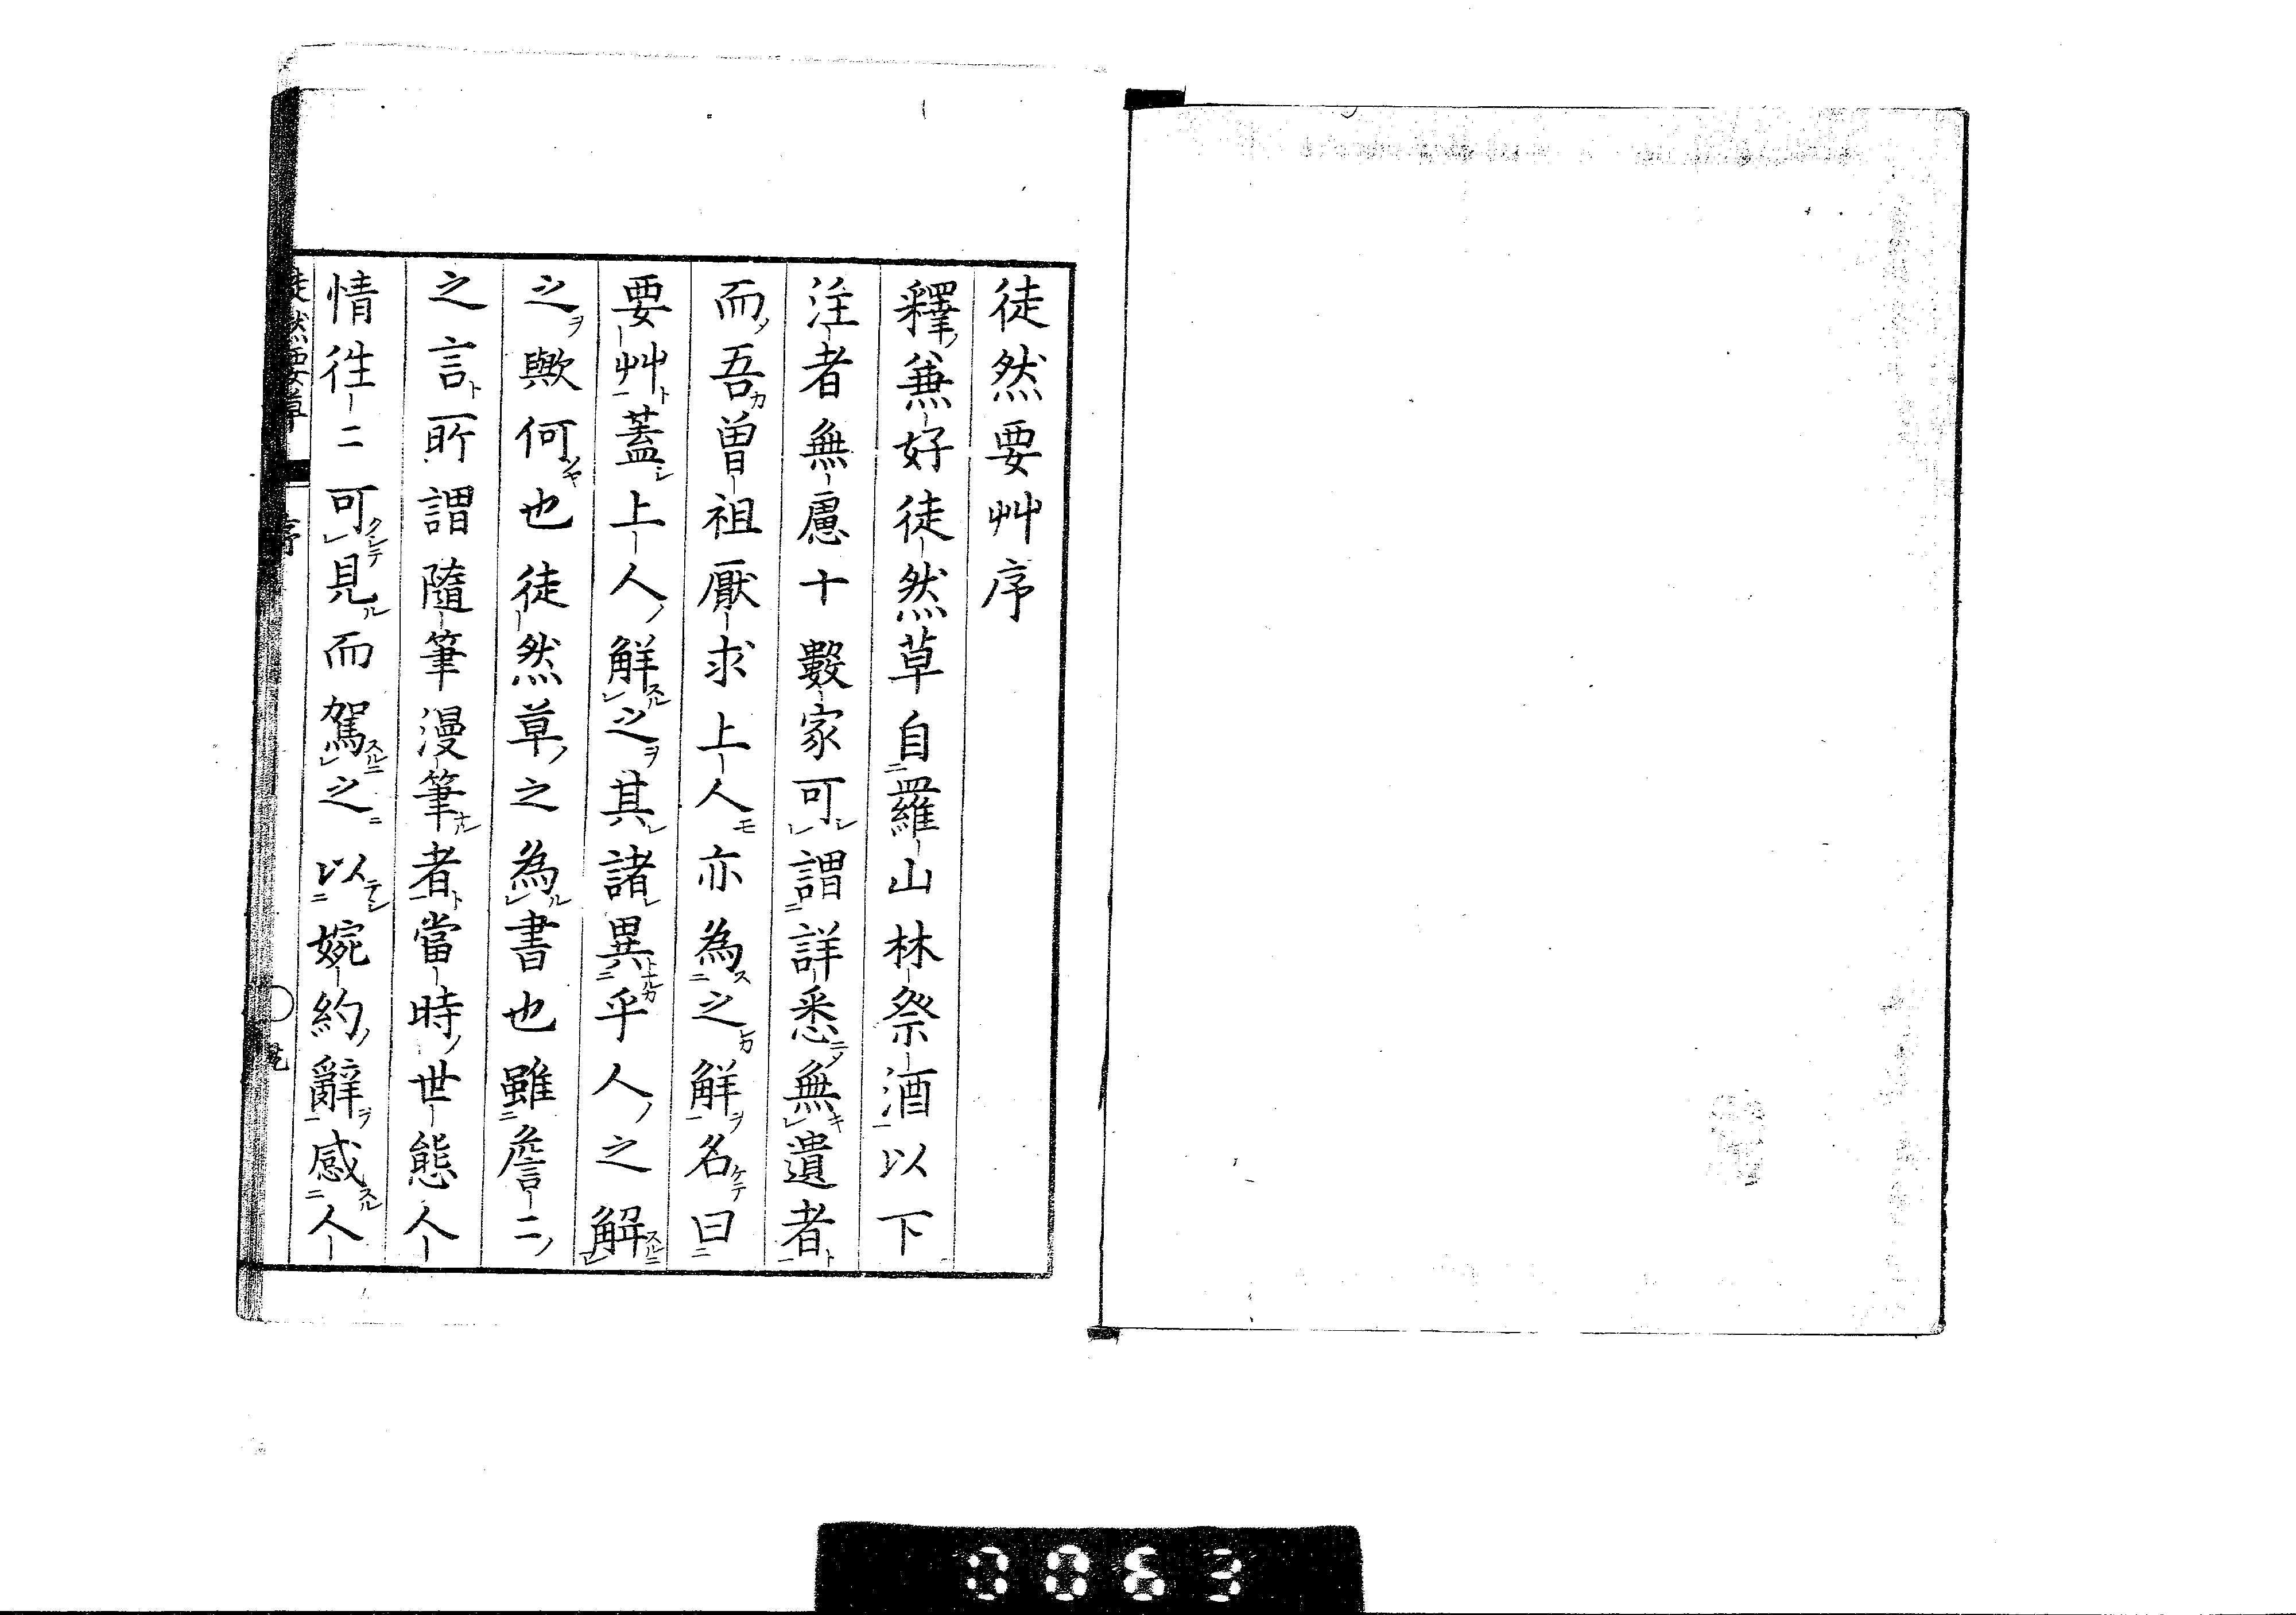 徒然要艸序
釋兼好徒然草自羅山林祭酒以下
注者無慮十數家可謂詳悉無遺者
而吾曽祖厭求上人亦為之解名曰
要艸蓋上人解之其諸異乎人之解
之歟何也徒然草之為書也雖詹二
之言所謂隨筆漫筆者當時世態人
情徃二可見而駕之以婉約辭感人
徒然要草 序
0063